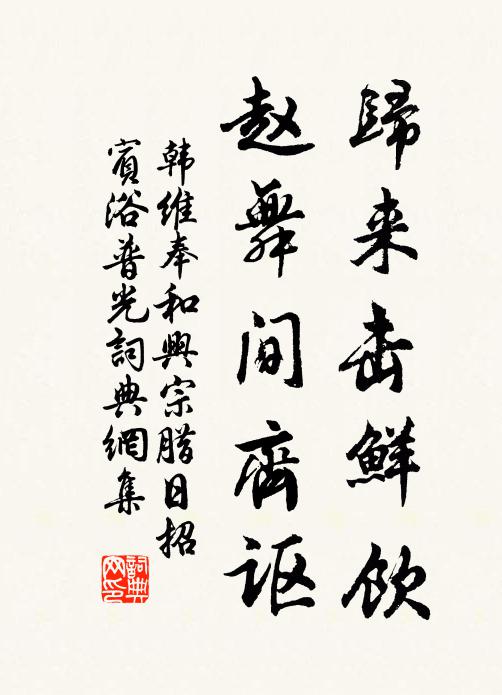 歸来击鲜饮
赵舞间齊讴
韩维奉和興宗腊日招
賓浴普光詞典網集
詞典网印